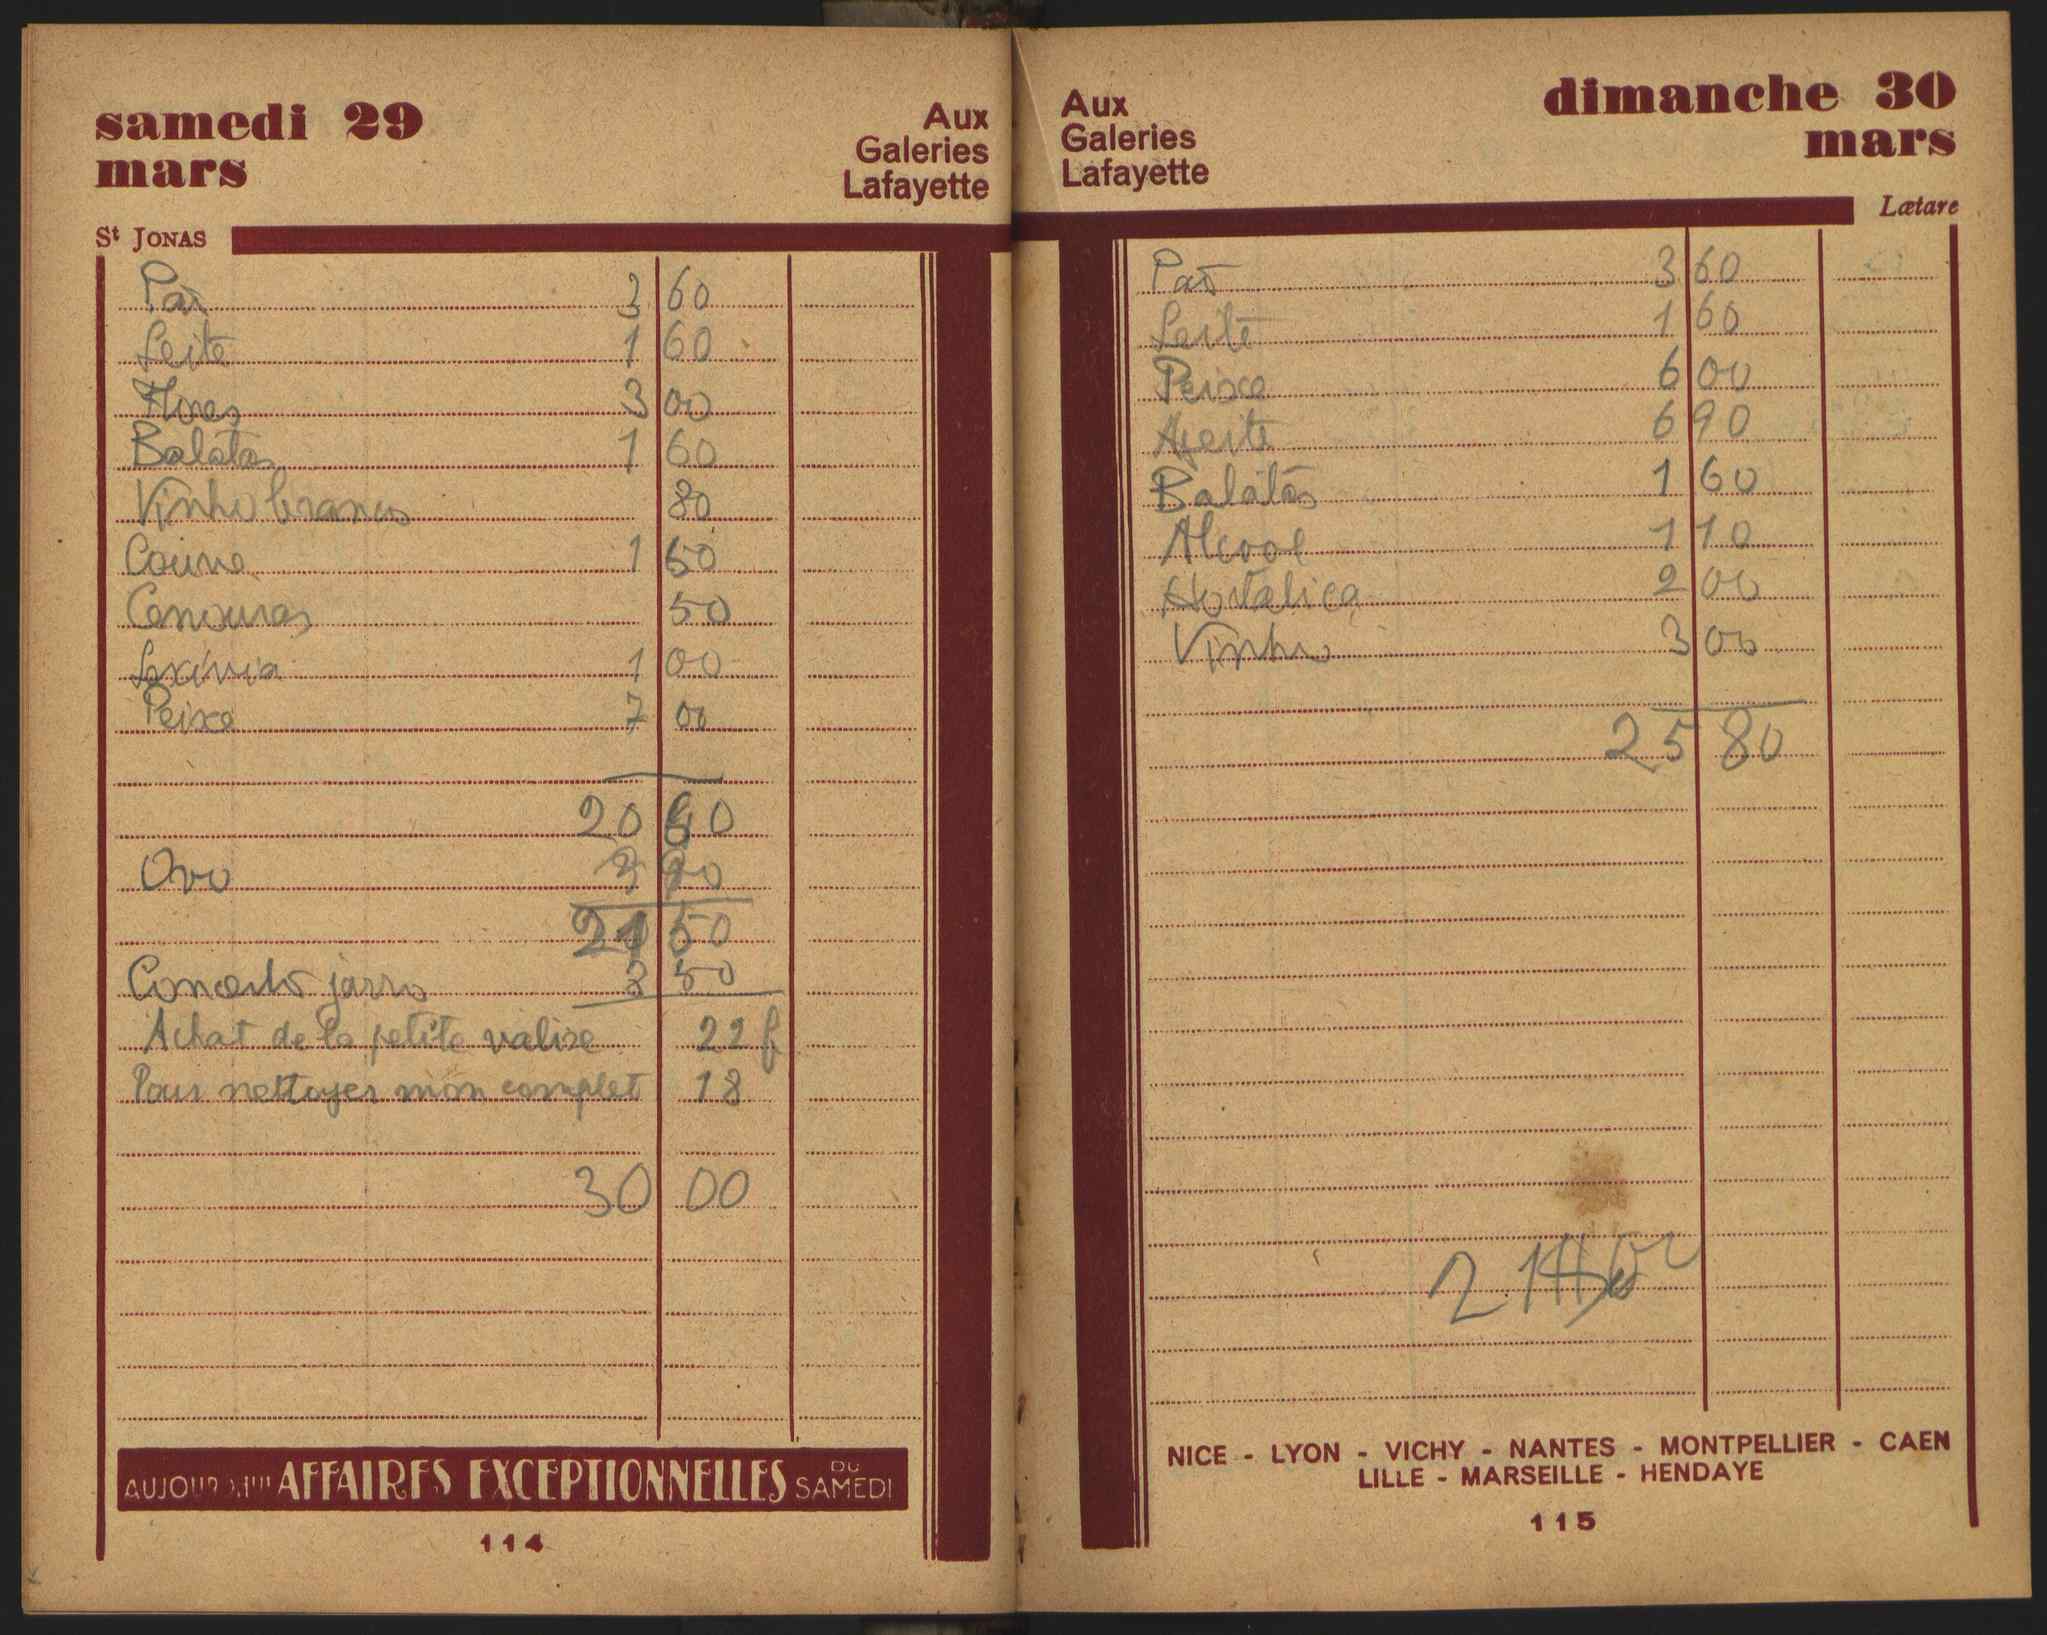 samedi 29
mars
Aux
Galeries
Lafayette
St JONAS
Pão 3 60
Leite 1 60
Flores 3 00
Batatas 1 60
Vinho branco 80
Couve 1 50
Cenouras 50
Lexívia 1 00
Peixe 7 00
20 60
Ovo 90
21 50
Concerto jarro 2 50
Achat de la petite valise 22 f
Pour nettoyer mon complet 18
30 00
AUJOURD'HUI AFFAIRES EXCEPTIONNELLES DU SAMEDI
114
Aux
Galeries
Lafayette
dimanche 30
mars
Lætare
Pão 3 60
Leite 1 60
Peixe 6 00
Azeite 6 90
Batatas 1 60
Alcool 1 10
Hortaliça 2 00
Vinho 3 00
25 80
NICE - LYON - VICHY - NANTES - MONTPELLIER - CAEN
LILLE - MARSEILLE - HENDAYE
115